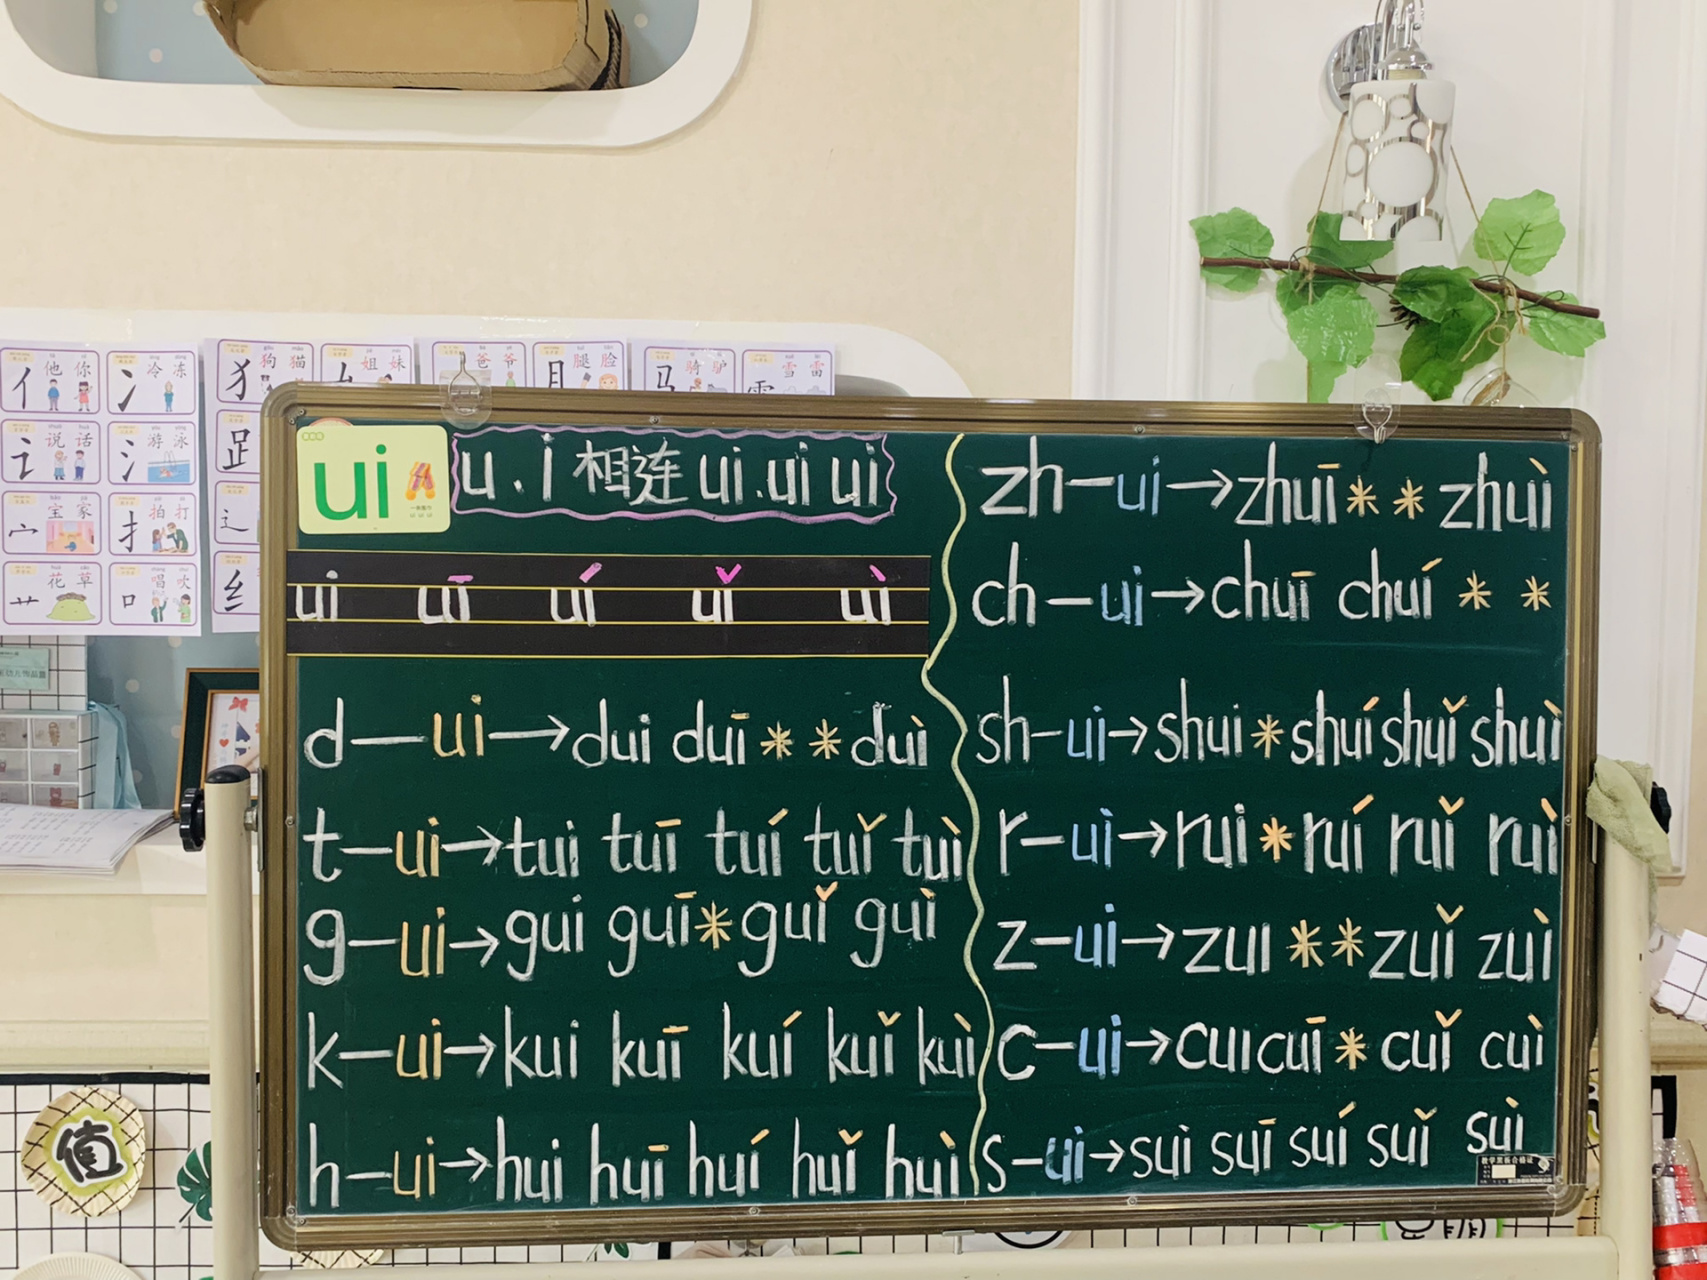 他 你
亻
冷 冻
冫
狗 猫
犭
姐 妹
爸 爷
腿 脸
月
骑 驴
马
雪 雷
说 话
讠
游 泳
氵
宝 家
宀
拍 打
扌
花 草
艹
唱 吹
口
纟
ui
u . i 相连 ui . ui ui
ui uī uí uǐ uì
d—ui→dui duī * * duì
t—ui→tui tuī tuí tuǐ tuì
g—ui→gui guī * guǐ guì
k—ui→kui kuī kuí kuǐ kuì
h—ui→hui huī huí huǐ huì
zh—ui→zhuī * * zhuì
ch—ui→chuī chuí * *
sh—ui→shui * shuí shuǐ shuì
r—ui→rui * ruí ruǐ ruì
z—ui→zui * * zuǐ zuì
c—ui→cui cuī * cuǐ cuì
s—ui→sui suī suí suǐ suì
值